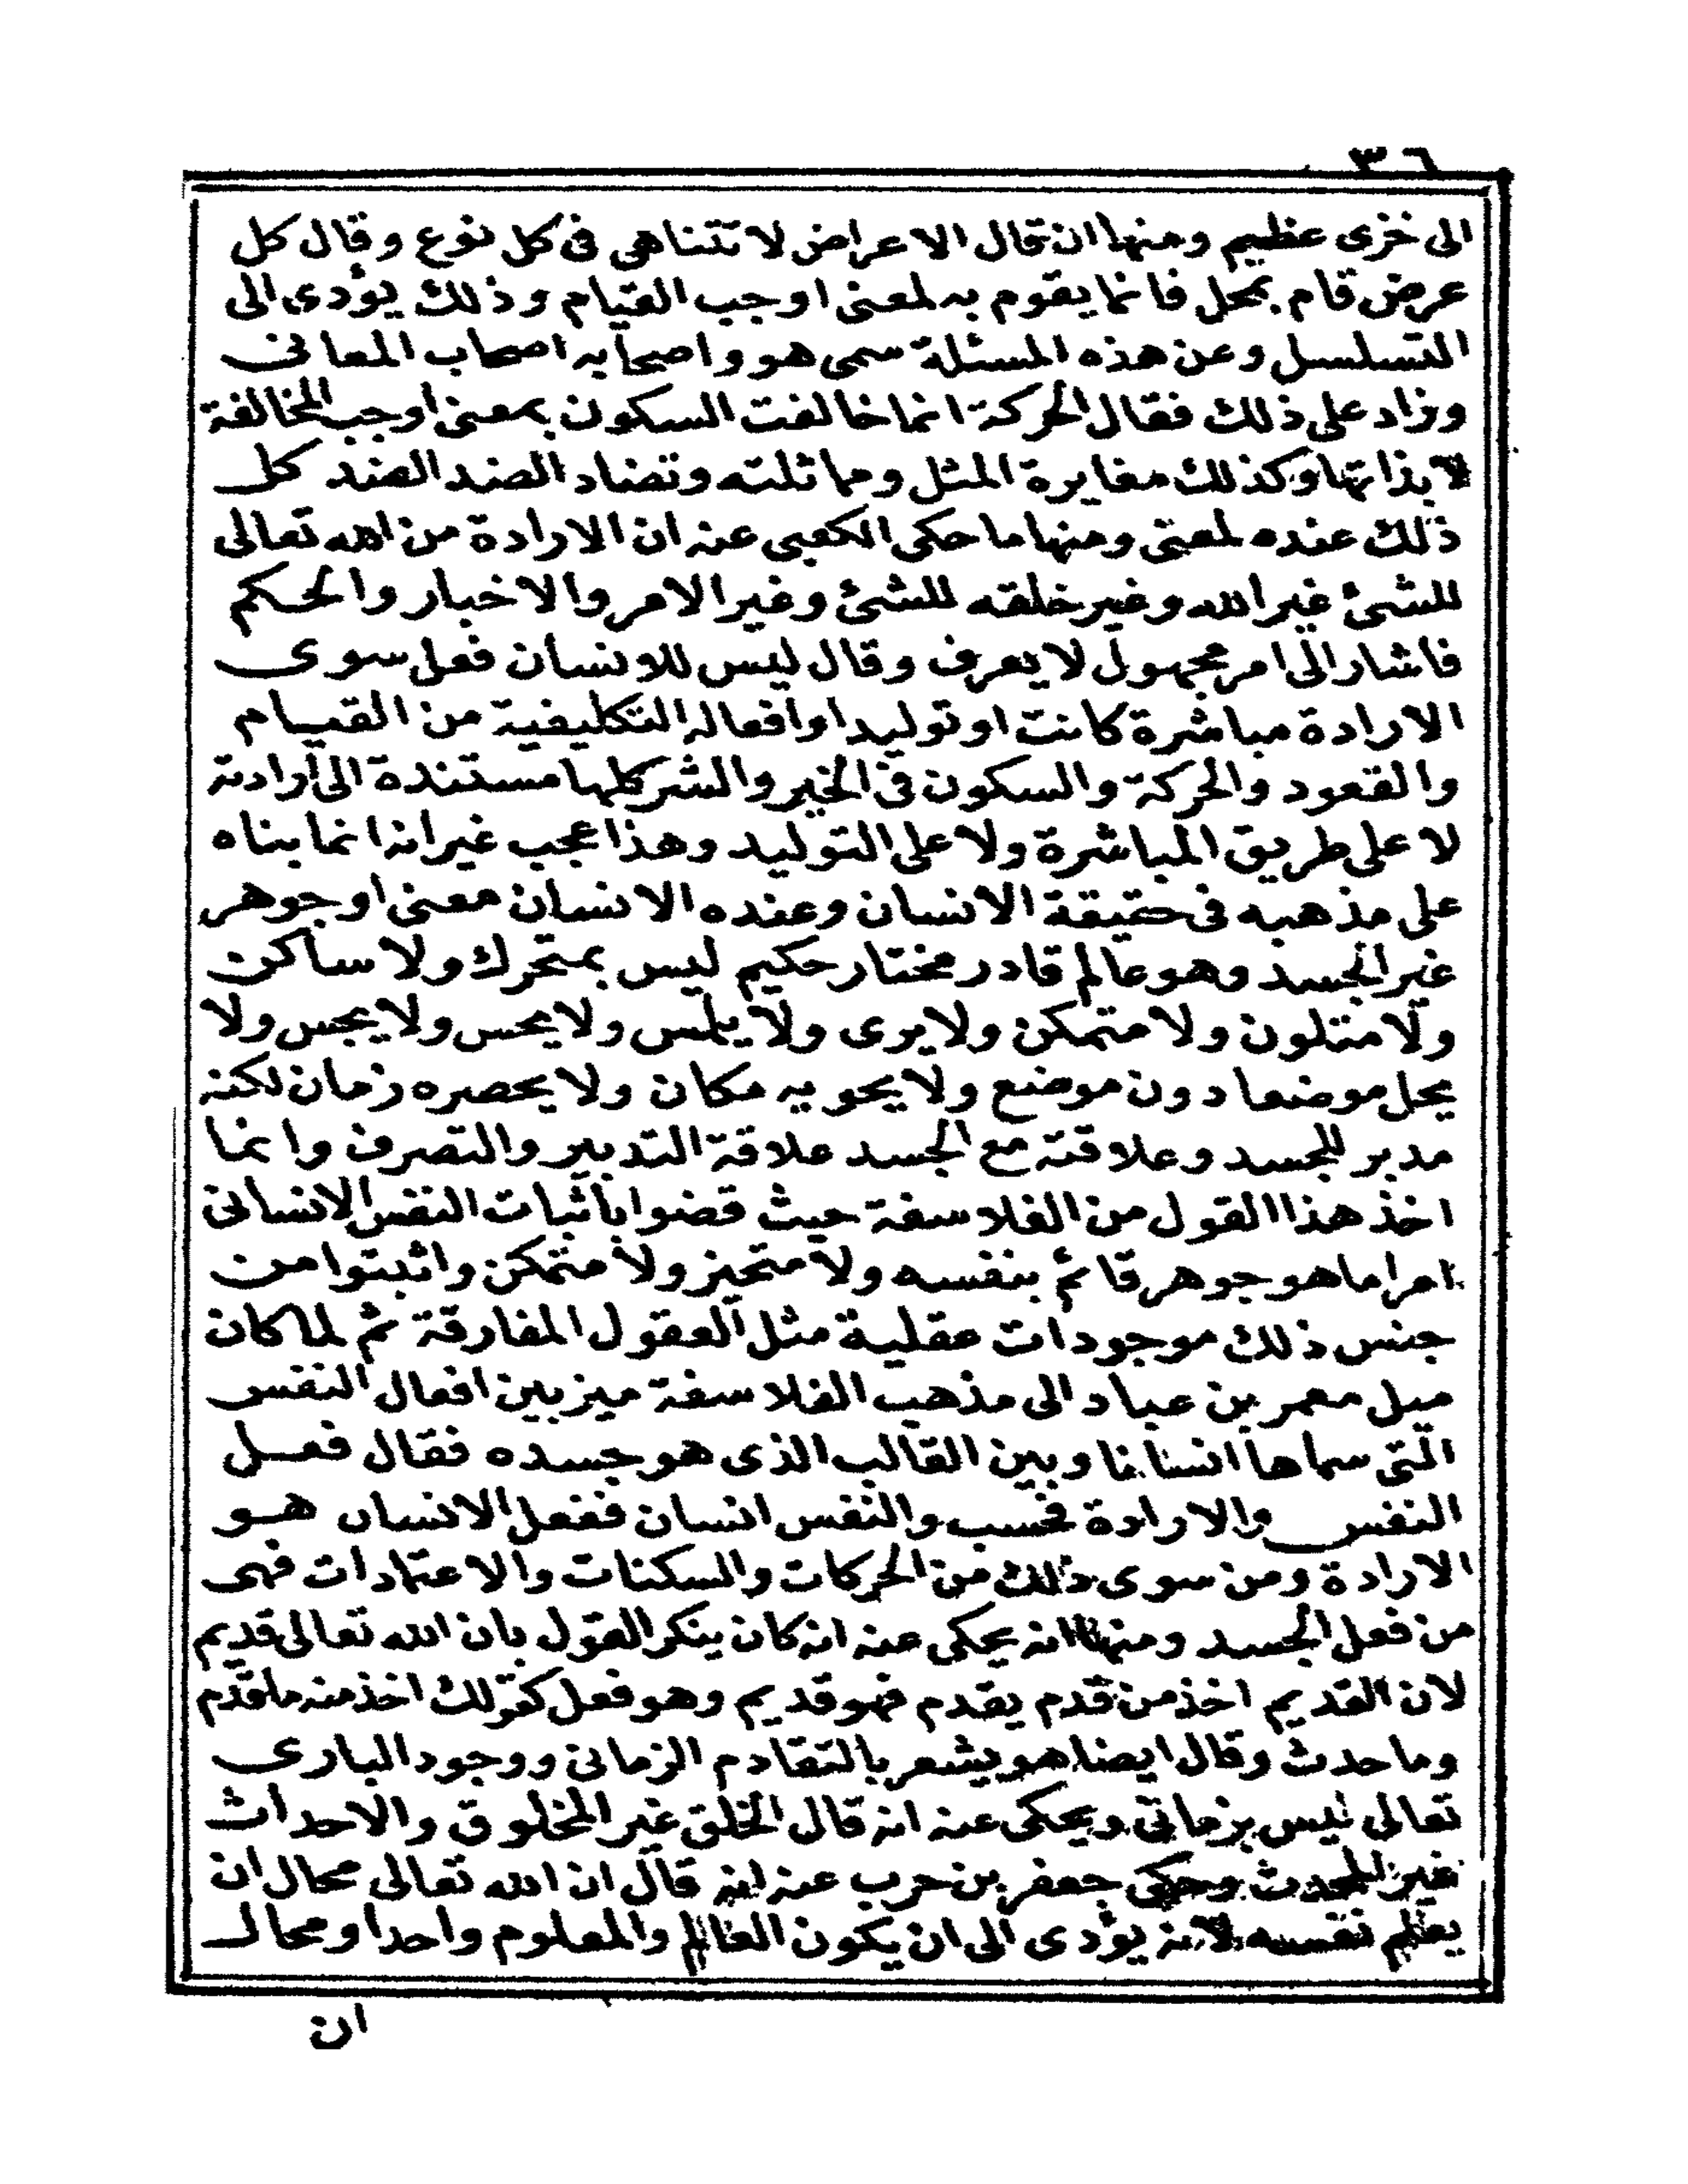 ٣٦
الى خزى عظيم ومنها ان قال الاعراض لا تتناهى فى كل نوع وقال كل
عرض قام بمحل فانما يقوم به لمعنى اوجب القيام وذلك يؤدى الى
التسلسل وعن هذه المسئلة سمى هو واصحابه اصحاب المعانى
وزاد على ذلك فقال الحركة انما خالفت السكون بمعنى اوجب المخالفة
لا بذاتها وكذلك مغايرة المثل ومماثلته وتضاد الضد الضد كل
ذلك عنده لمعنى ومنها ما حكى الكعبى عنه ان الارادة من الله تعالى
للشئ غير الله وغير خلقه للشئ وغير الامر والاخبار والحكم
فاشار الى امر مجهول لا يعرف وقال ليس للانسان فعل سوى
الارادة مباشرة كانت او توليدا وافعاله التكليفية من القيام
والقعود والحركة والسكون فى الخير والشر كلها مستندة الى ارادته
لا على طريق المباشرة ولا على التوليد وهذا عجب غير انه انما بناه
على مذهبه فى حقيقة الانسان وعنده الانسان معنى او جوهر
غير الجسد وهو عالم قادر مختار حكيم ليس بمتحرك ولا ساكن
ولا متلون ولا متمكن ولا يرى ولا يلمس ولا يحس ولا يجس ولا
يحل موضعا دون موضع ولا يحويه مكان ولا يحصره زمان لكنه
مدبر للجسد وعلاقته مع الجسد علاقة التدبير والتصرف وانما
اخذ هذا القول من الفلاسفة حيث قضوا باثبات النفس الانسانى
امرا ما هو جوهر قائم بنفسه ولا متحيز ولا متمكن واثبتوا من
جنس ذلك موجودات عقلية مثل العقول المفارقة ثم لما كان
ميل معمر بن عباد الى مذهب الفلاسفة ميز بين افعال النفس
التى سماها انسانا وبين القالب الذى هو جسده فقال فعل
النفس والارادة فحسب والنفس انسان ففعل الانسان هو
الارادة ومن سوى ذلك من الحركات والسكنات والاعتمادات فهى
من فعل الجسد ومنها انه يحكى عنه انه كان ينكر القول بان الله تعالى قديم
لان القديم اخذ من قدم يقدم فهو قديم وهو فعل كقولك اخذ منه ما قدم
وما حدث وقال ايضا هو يشعر بالتقادم الزمانى ووجود البارى
تعالى ليس بزمانى ويحكى عنه انه قال الخلق غير المخلوق والاحداث
غير المحدث وحكى جعفر بن حرب عنه انه قال ان الله تعالى محال ان
يعلم نفسه لانه يؤدى الى ان يكون العالم والمعلوم واحدا ومحال
ان